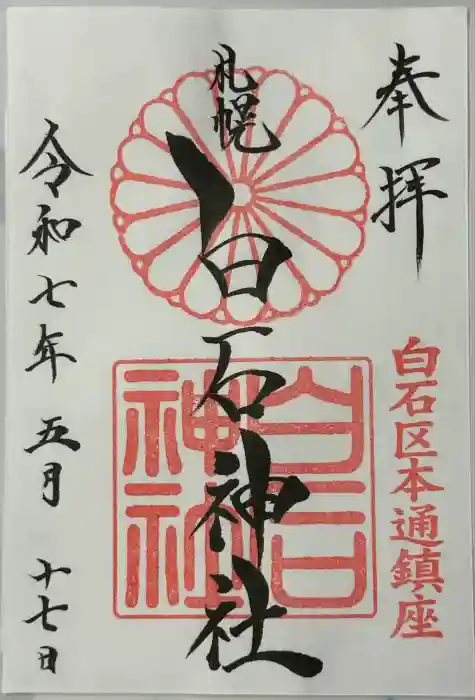 奉拝
白石区本通鎮座
札幌
白石神社
白石神社
令和七年 五月 十七日